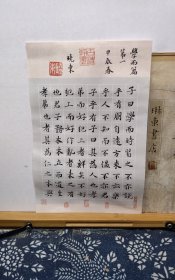 學而篇
第一
甲辰春
曉東
子曰學而時習之不亦說
乎有朋自遠方來不亦樂
乎人不知而不慍不亦君
子乎有子曰其為人也孝
弟而好犯上者鮮矣不好
犯上而好作亂者未之有
也君子務本本立而道生
孝弟也者其為仁之本與
東書店